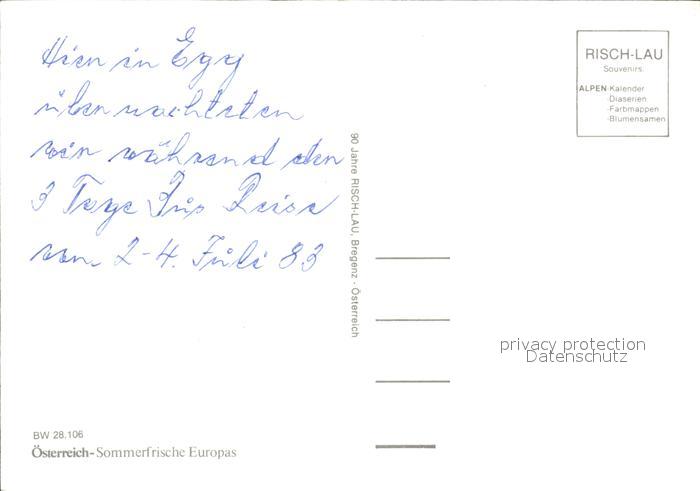 Hier in Egg
übernachteten
wir während der
3 Tage Bus Reise
vom 2-4. Juli 83
BW 28.106
Österreich-Sommerfrische Europas
90 Jahre RISCH-LAU, Bregenz · Österreich
RISCH-LAU
Souvenirs.
ALPEN-Kalender
-Diaserien
-Farbmappen
-Blumensamen
privacy protection
Datenschutz